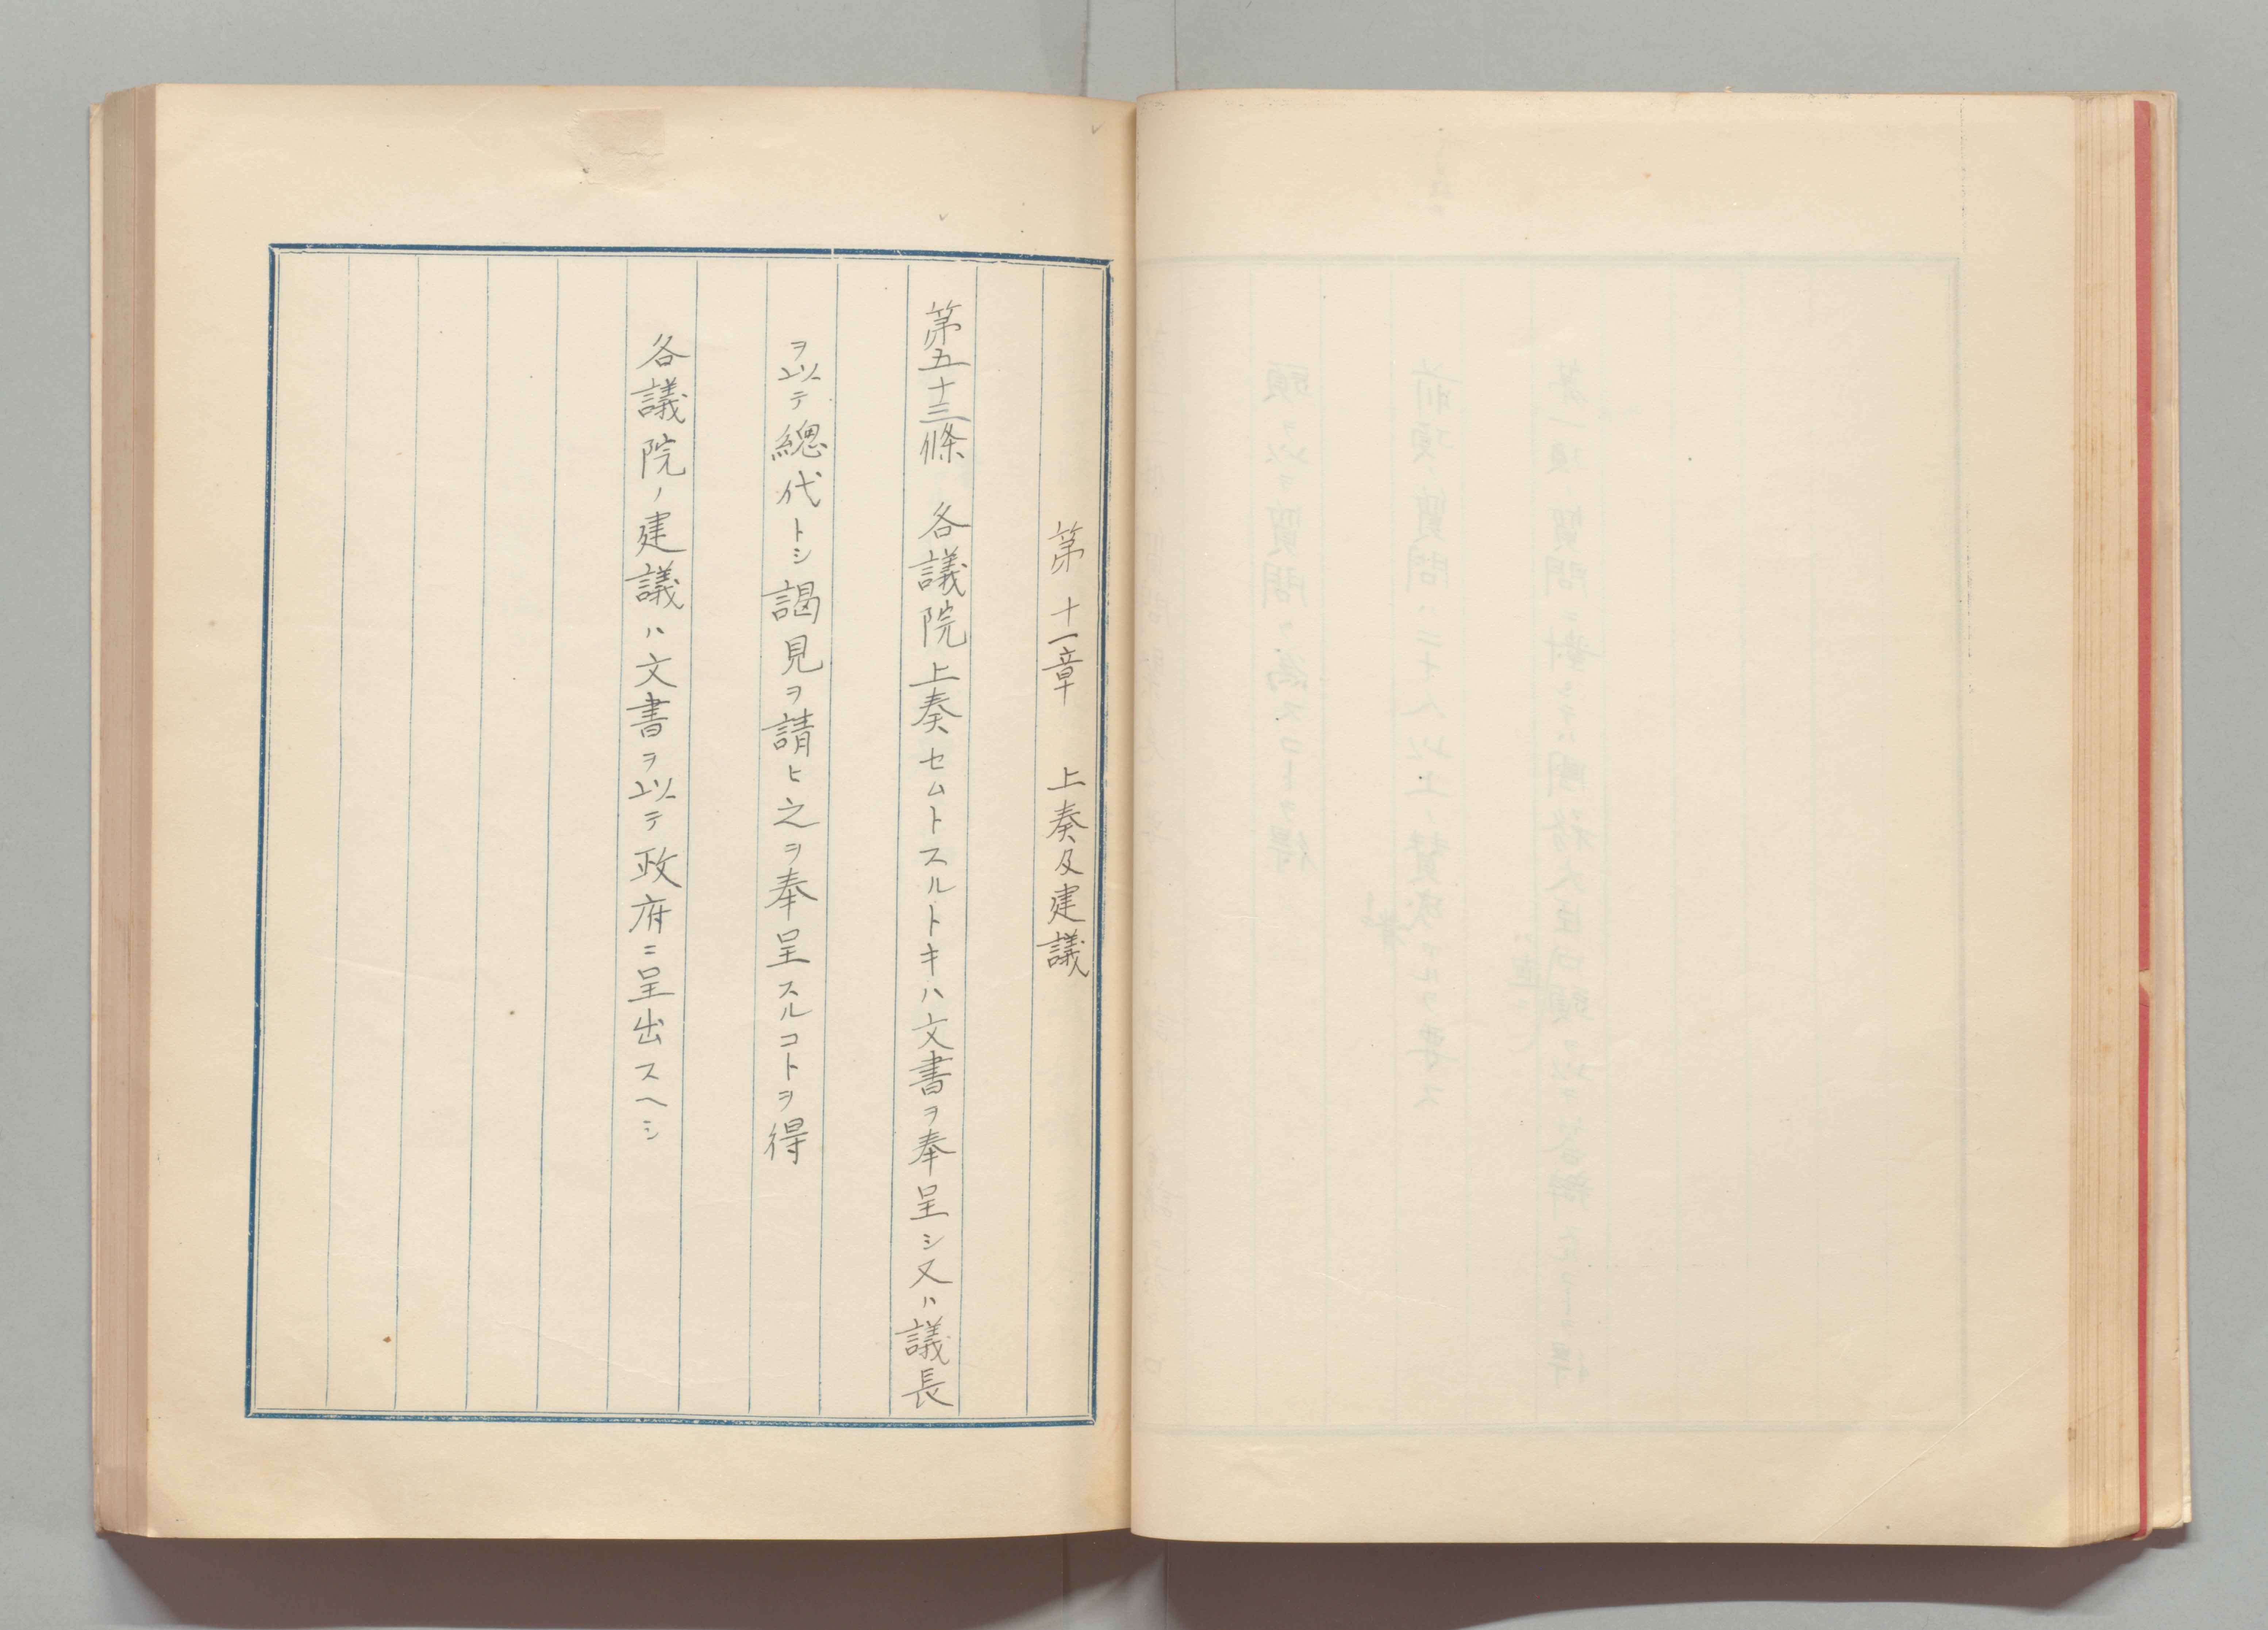 第十一章　上奏及建議
第五十三條　各議院上奏セムトスルトキハ文書ヲ奉呈シ又ハ議長
ヲ以テ總代トシ謁見ヲ請ヒ之ヲ奉呈スルコトヲ得
各議院ノ建議ハ文書ヲ以テ政府ニ呈出スヘシ